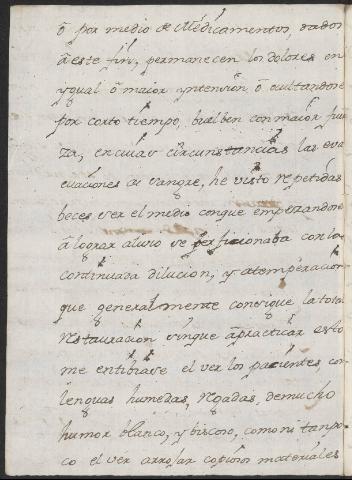 õ por medio de Medicamentos, dados
a este fin, permanecen los dolores en
ygual õ maior yntension, õ ocultandose
por corto tiempo, buelben con maior fuer
za, en cuias circunstancias las eva
cuaciones de sangre, he visto repetidas
beces ser el medio con que empezandose
a lograr aluio se perficionaba con la
continuada dilucion, y atemperacion
que generalmente consigue la total
restauracion sin que a practicar esto
me entibiase el ver los pacientes, con
lenguas humedas, regadas, de mucho
humor blanco, y biscoso, como ni tanpo
co el ver arrojar copiosos materiales